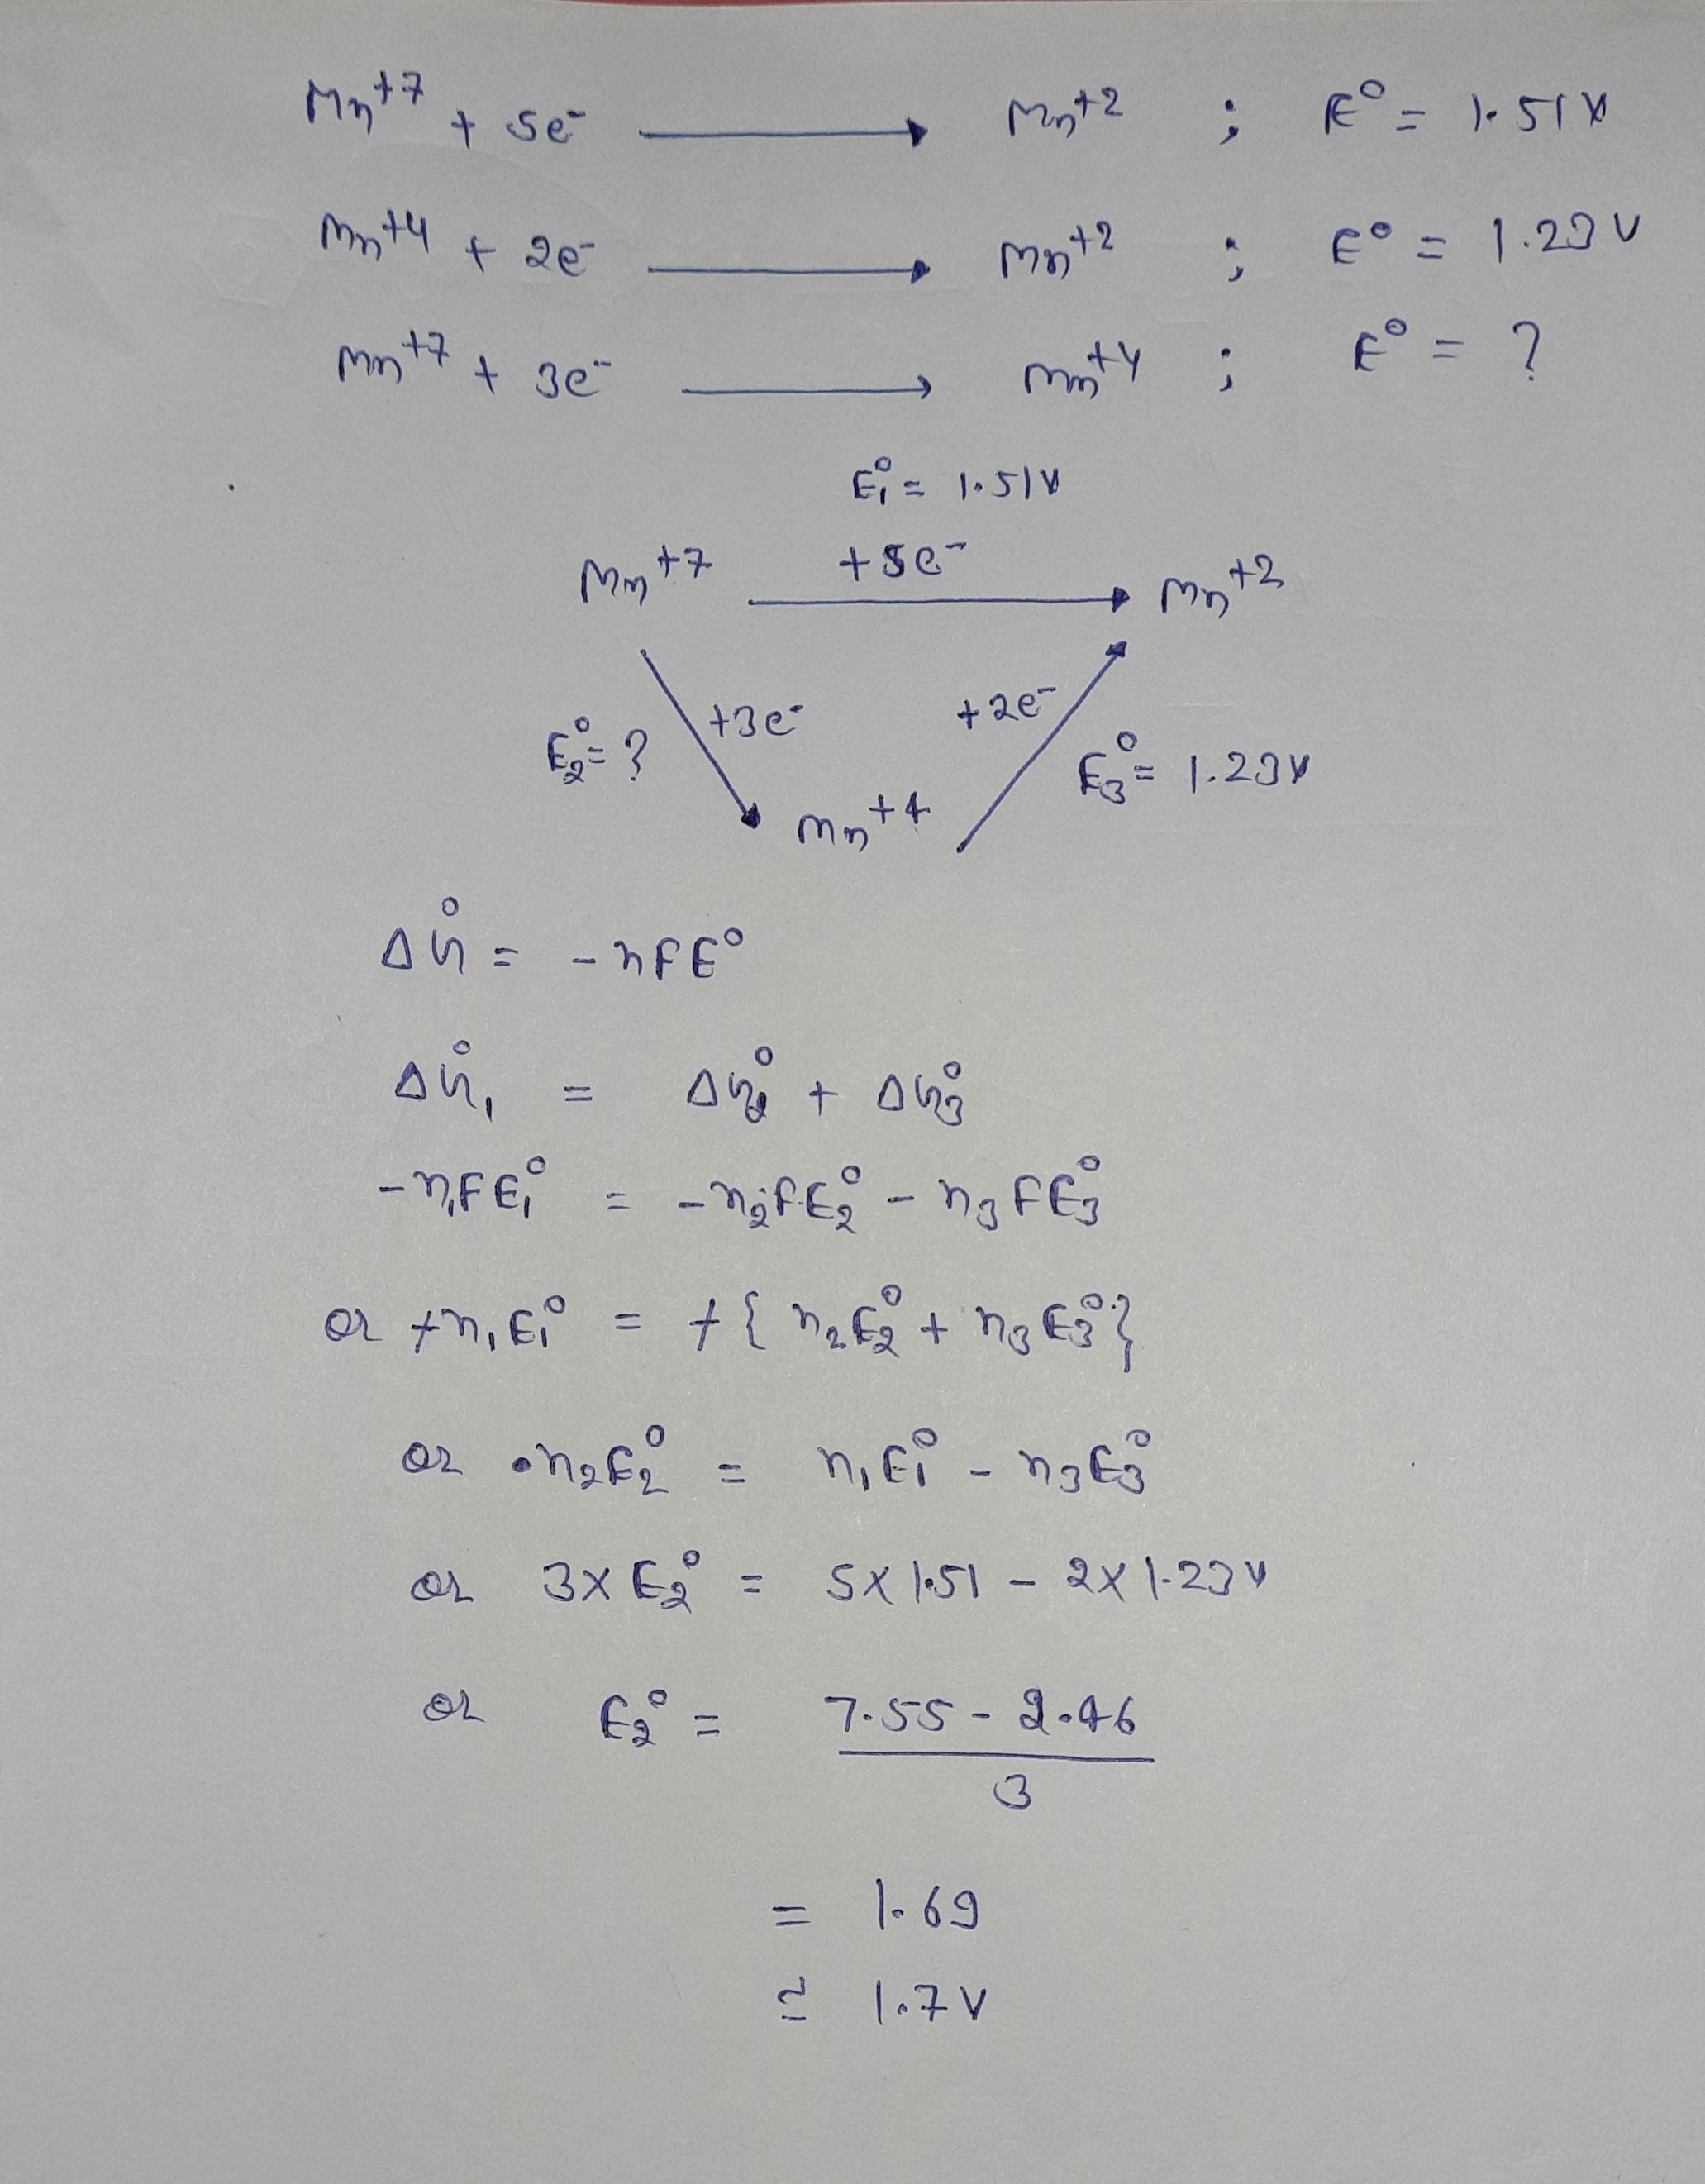 Mn⁺⁷ + 5e⁻ ⟶ Mn⁺² ; E° = 1.51V
Mn⁺⁴ + 2e⁻ ⟶ Mn⁺² ; E° = 1.23V
Mn⁺⁷ + 3e⁻ ⟶ Mn⁺⁴ ; E° = ?
E₁° = 1.51V
Mn⁺⁷ +5e⁻ ⟶ Mn⁺²
E₂° = ? +3e⁻ +2e⁻ E₃° = 1.23V
Mn⁺⁴
ΔG° = -nFE°
ΔG₁° = ΔG₂° + ΔG₃°
-n₁FE₁° = -n₂FE₂° - n₃FE₃°
or +n₁E₁° = +{n₂E₂° + n₃E₃°}
or n₂E₂° = n₁E₁° - n₃E₃°
or 3×E₂° = 5×1.51 - 2×1.23V
or E₂° = 7.55 - 2.46
3
= 1.69
≃ 1.7V